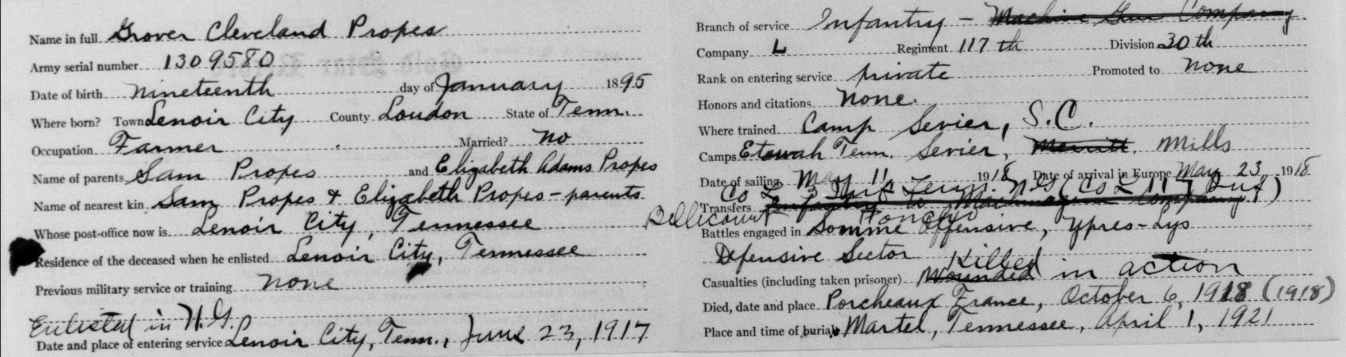 Name in full Grover Cleveland Propes
Army serial number 1309580
Date of birth nineteenth day of January 1895
Where born? Town Lenoir City County Loudon State of Tenn.
Occupation Farmer Married? no
Name of parents Sam Propes and Elizabeth Adams Propes
Name of nearest kin Sam Propes & Elizabeth Propes-parents
Whose post-office now is Lenoir City, Tennessee
Residence of the deceased when he enlisted Lenoir City, Tennessee
Previous military service or training none
Enlisted in N.G.
Date and place of entering service Lenoir City, Tenn., June 23, 1917
Branch of service Infantry - Machine Gun Company
Company L Regiment 117th Division 30th
Rank on entering service private Promoted to none
Honors and citations none.
Where trained Camp Sevier, S.C.
Camps Etowah Tenn. Sevier, Merritt. Mills
Date of sailing May 11 1918 Date of arrival in Europe May 23 1918
Co L 3 Tenn. N.G (Co L 117 Inf)
Transfers Infantry to Machine gun Company
Bellicourt
Battles engaged in Somme Offensive, Ypres-Lys
Defensive Sector
Killed
Casualties (including taken prisoner) Wounded in action
Died, date and place Porcheaux France, October 6, 1918 (1918)
Place and time of burial Martel, Tennessee, April 1, 1921